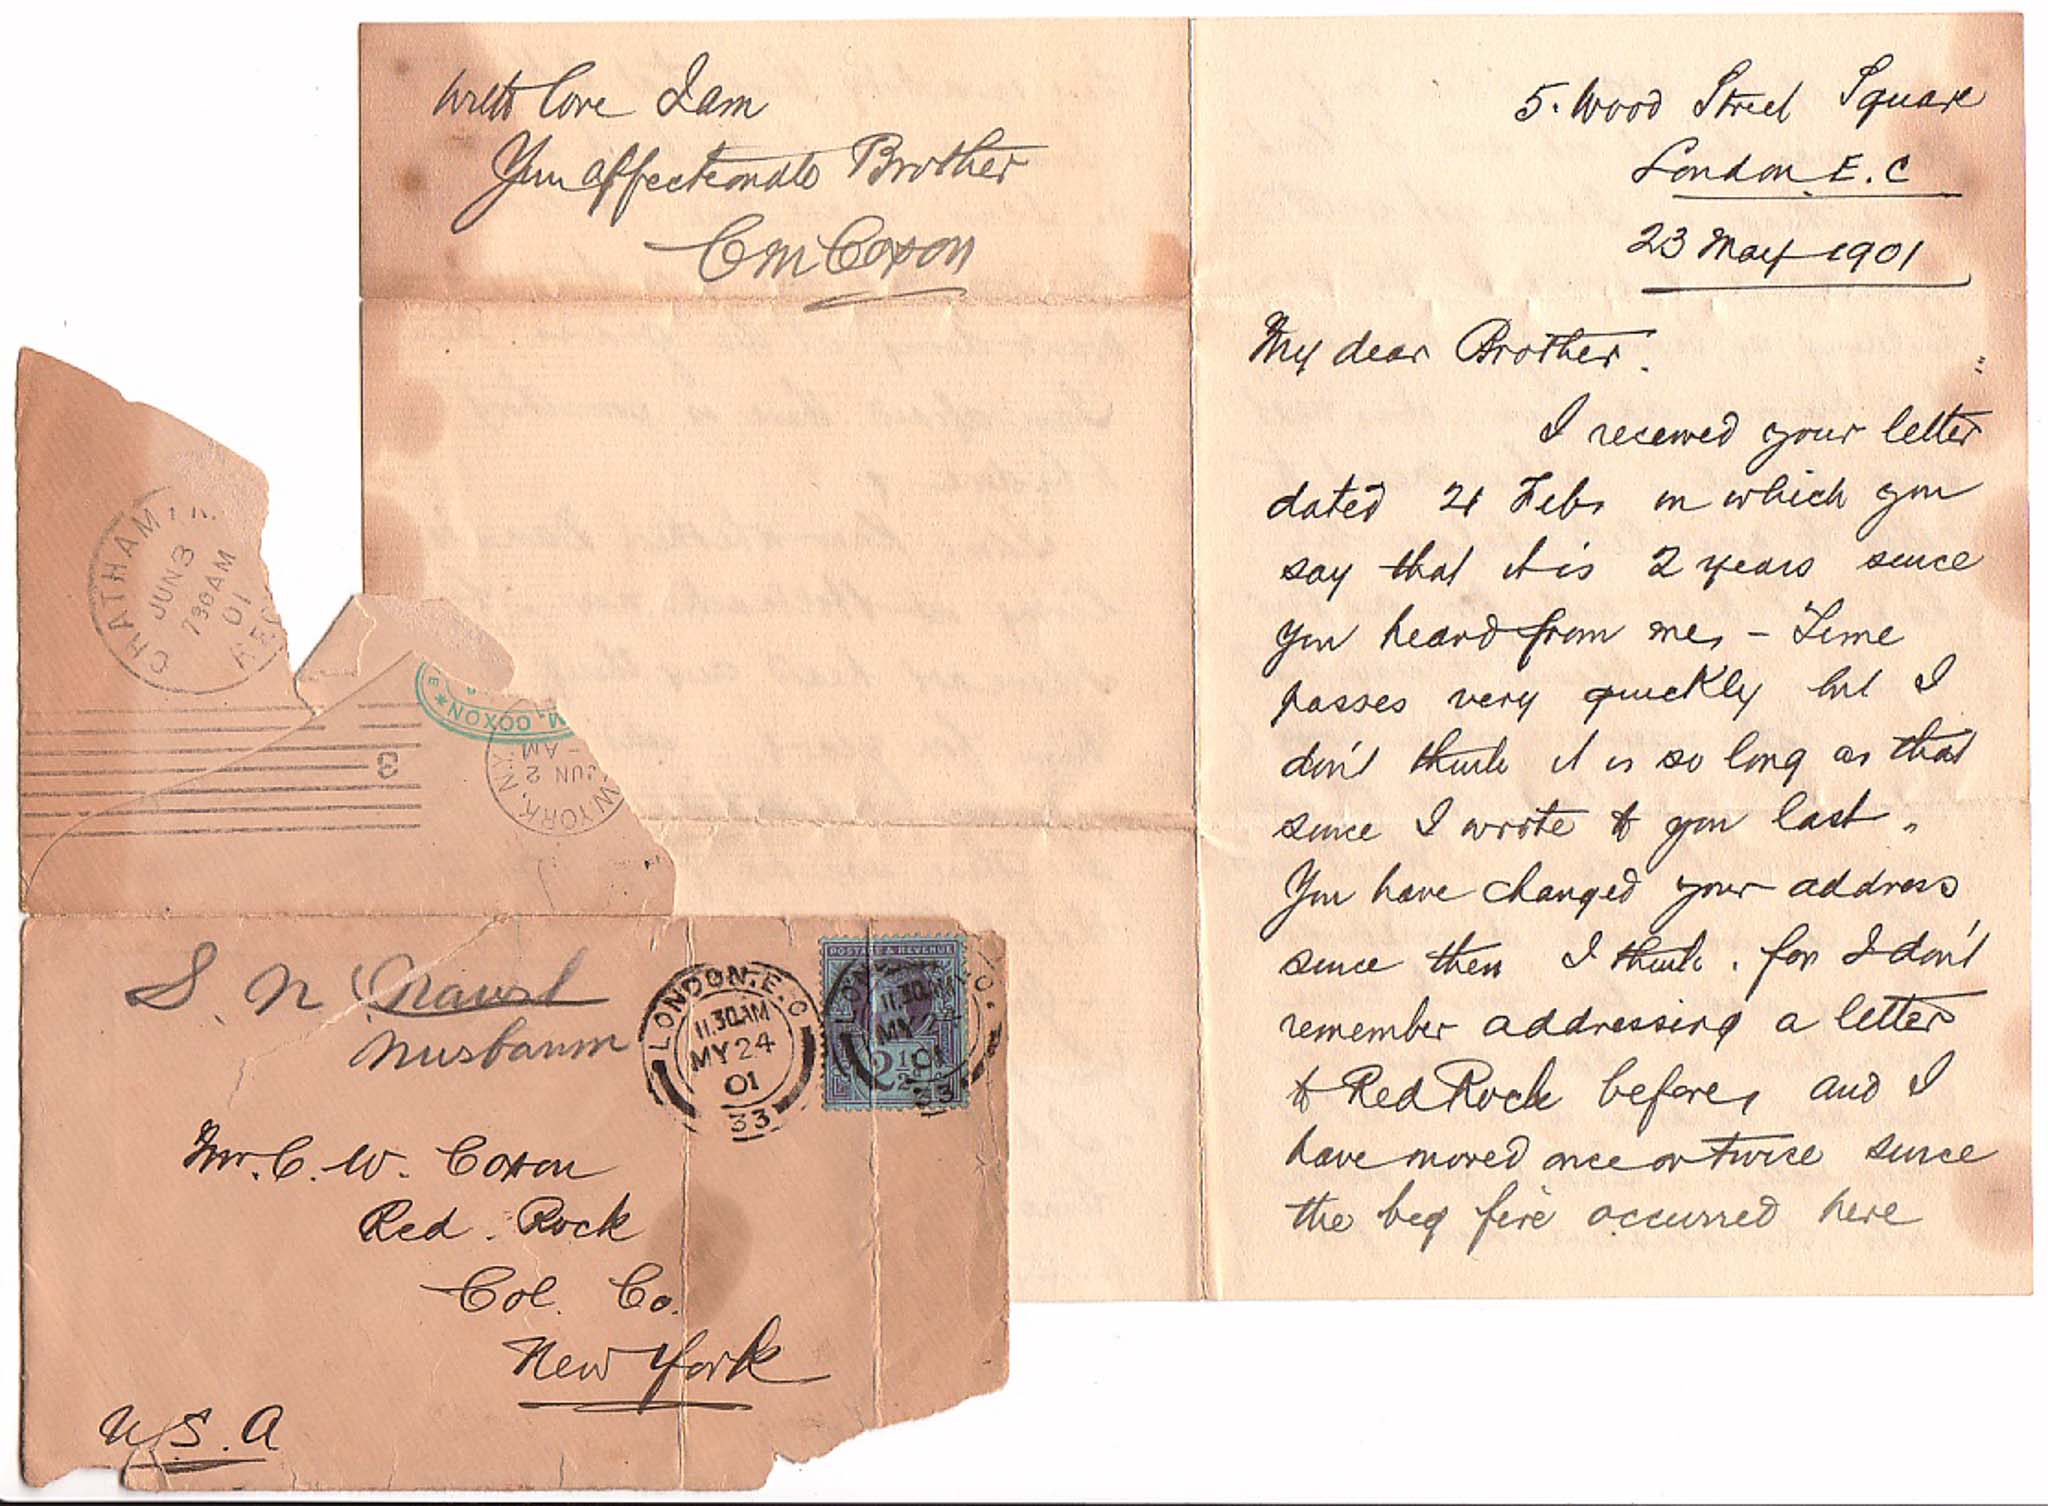 With love I am
Your affectionate Brother
C M Coxon
5. Wood Street Square
London. E. C
23 May 1901
My dear Brother.
I received your letter
dated 21 Feb, in which you
say that it is 2 years since
you heard from me, - Time
passes very quickly but I
don't think it is so long as that
since I wrote to you last.
You have changed your address
since then I think. for I don't
remember addressing a letter
to Red Rock before, and I
have moved once or twice since
the big fire occurred here
CHATHAM
JUN 3
730 AM
01
REC
3
M. COXON *
W YORK, N.Y.
JUN 2
AM
S. N.
Nusbaum
LONDON. E. C
11.30AM
MY 24
01
33
POSTAGE & REVENUE
2½
LONDON
11.30AM
MY 24
01
33
Mr. C. W. Coxon
Red Rock
Col. Co.
New York
U. S. A